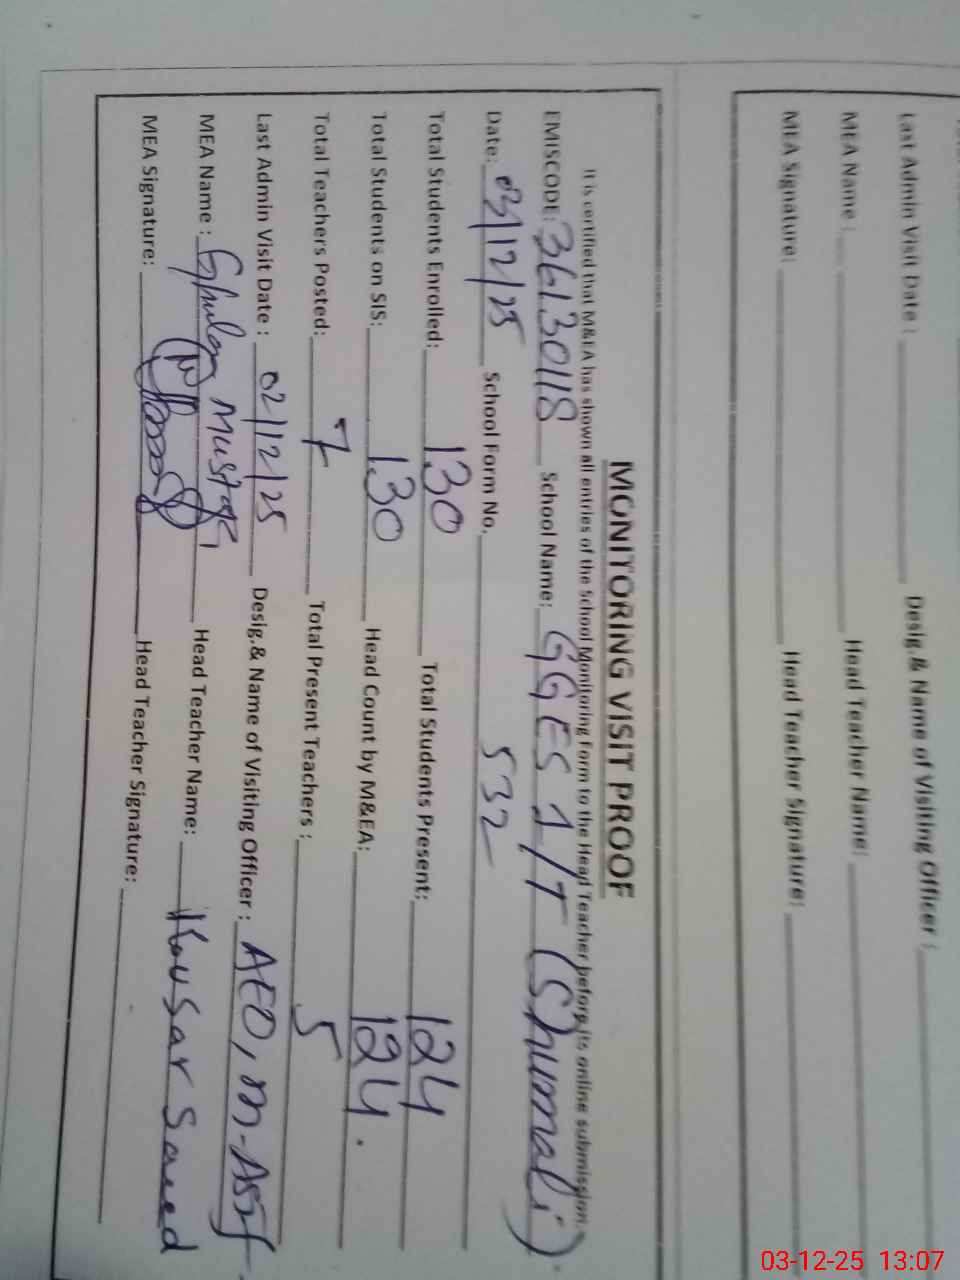 Last Admin Visit Date : Desig.& Name of Visiting Officer :
MEA Name : Head Teacher Name:
MEA Signature: Head Teacher Signature:
MONITORING VISIT PROOF
It is certified that M&EA has shown all entries of the School Monitoring Form to the Head Teacher before its online submission.
EMISCODE: 36130118 School Name: GGES 1/T (Shumali)
Date: 03/12/25 School Form No. 532
Total Students Enrolled: 130 Total Students Present: 124
Total Students on SIS: 130 Head Count by M&EA: 124.
Total Teachers Posted: 7 Total Present Teachers : 5
Last Admin Visit Date : 02/12/25 Desig.& Name of Visiting Officer : AEO, M-Asif
MEA Name : Ghulam Mustafa Head Teacher Name: Kousar Saeed
MEA Signature: Head Teacher Signature:
03-12-25 13:07